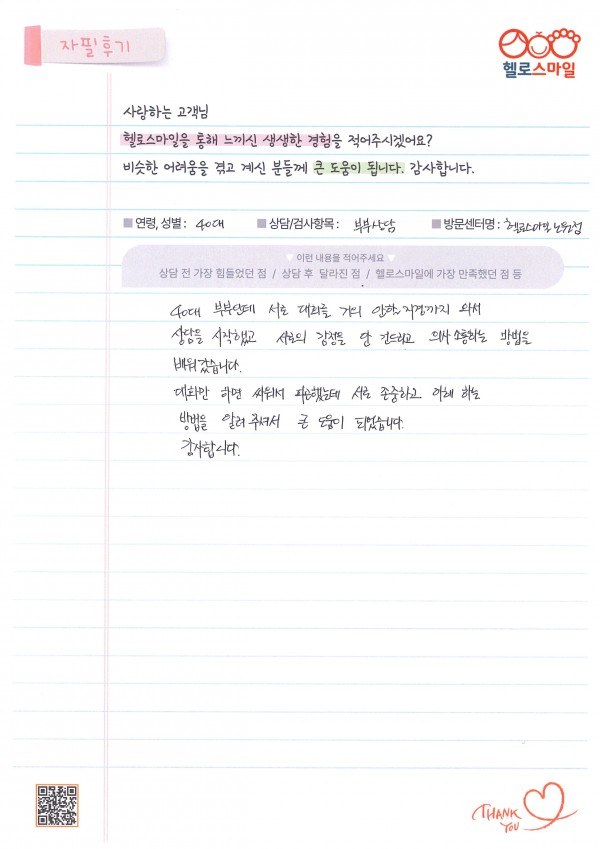 자필후기
헬로스마일
사랑하는 고객님
헬로스마일을 통해 느끼신 생생한 경험을 적어주시겠어요?
비슷한 어려움을 겪고 계신 분들께 큰 도움이 됩니다. 감사합니다.
■ 연령, 성별 : 40대 ■ 상담/검사항목 : 부부상담 ■ 방문센터명 : 헬로스마일 노원점
▼ 이런 내용을 적어주세요 ▼
상담 전 가장 힘들었던 점 / 상담 후 달라진 점 / 헬로스마일에 가장 만족했던 점 등
40대 부부인데 서로 대화를 거의 안하는 지경까지 와서
상담을 시작했고 서로의 감정을 안 건드리고 의사소통하는 방법을
배워갔습니다.
대화만 하면 싸워서 피곤했는데 서로 존중하고 이해 하는
방법을 알려 주셔서 큰 도움이 되었습니다.
감사합니다.
THANK
YOU